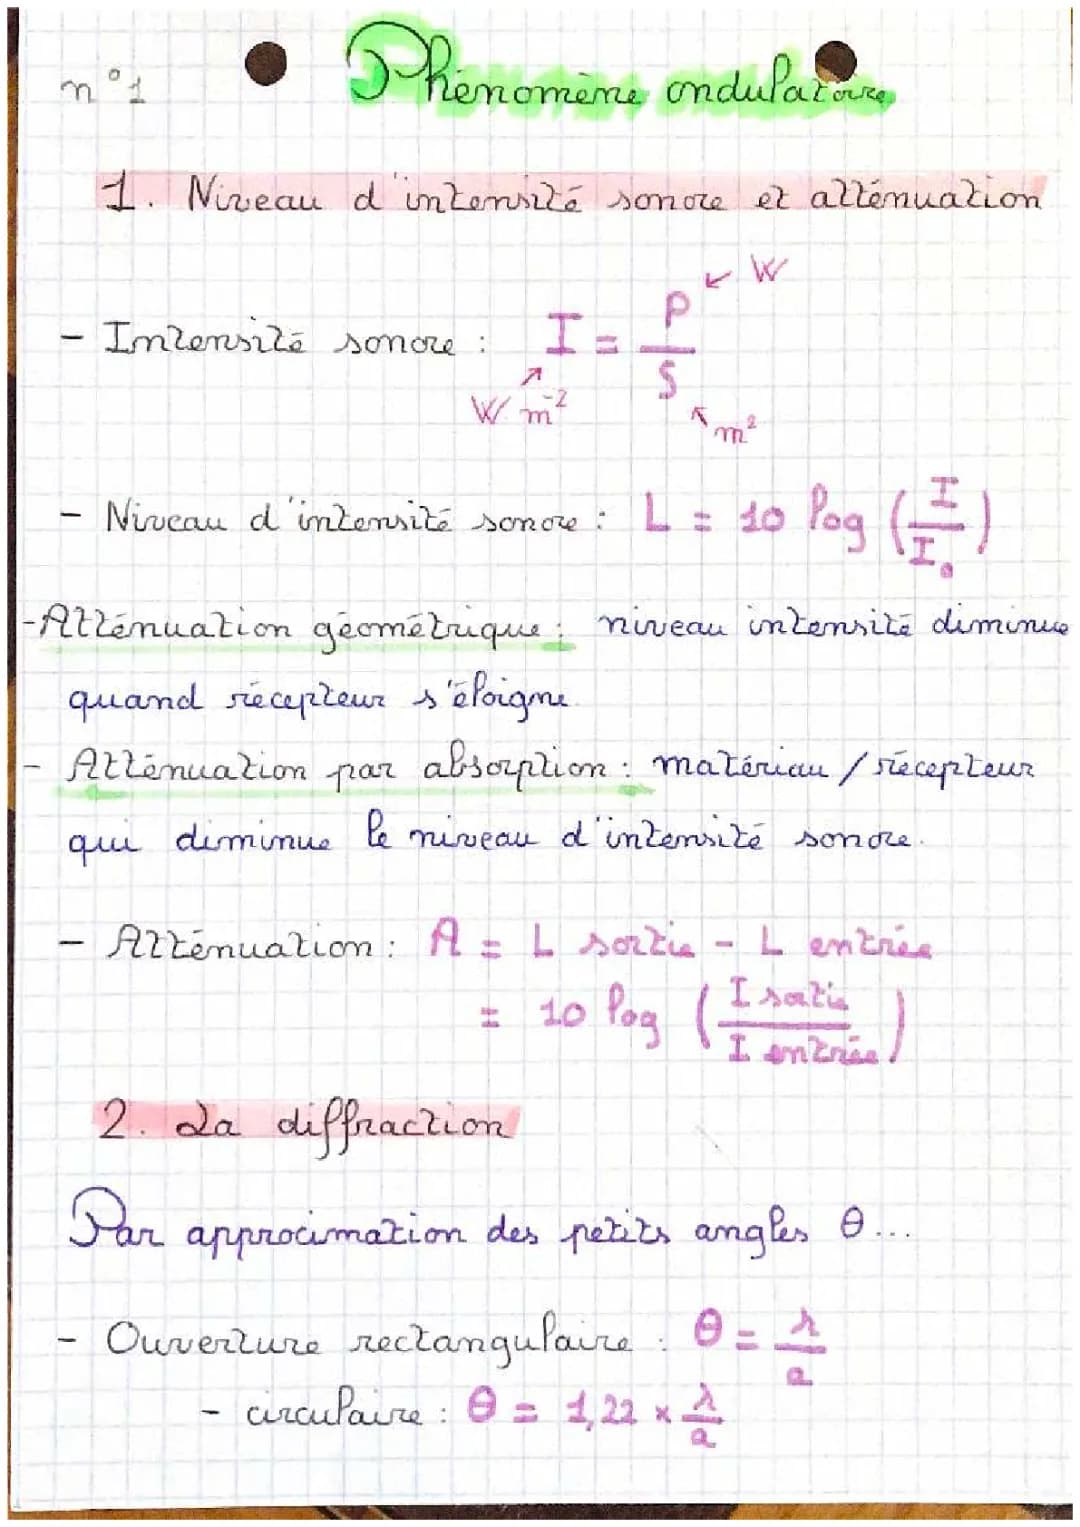 n°1
Phénomène ondulatoire
1. Niveau d'intensité sonore et atténuation
- Intensité sonore : I = P / S
W
W m⁻²
m²
- Niveau d'intensité sonore : L = 10 log (I / I₀)
- Atténuation géométrique : niveau intensité diminue
quand récepteur s'éloigne.
- Atténuation par absorption : matériau / récepteur
qui diminue le niveau d'intensité sonore.
- Atténuation : A = L sortie - L entrée
= 10 log (I sortie / I entrée)
2. La diffraction
Par approximation des petits angles θ...
- Ouverture rectangulaire : θ = λ / a
- circulaire : θ = 1,22 × λ / a